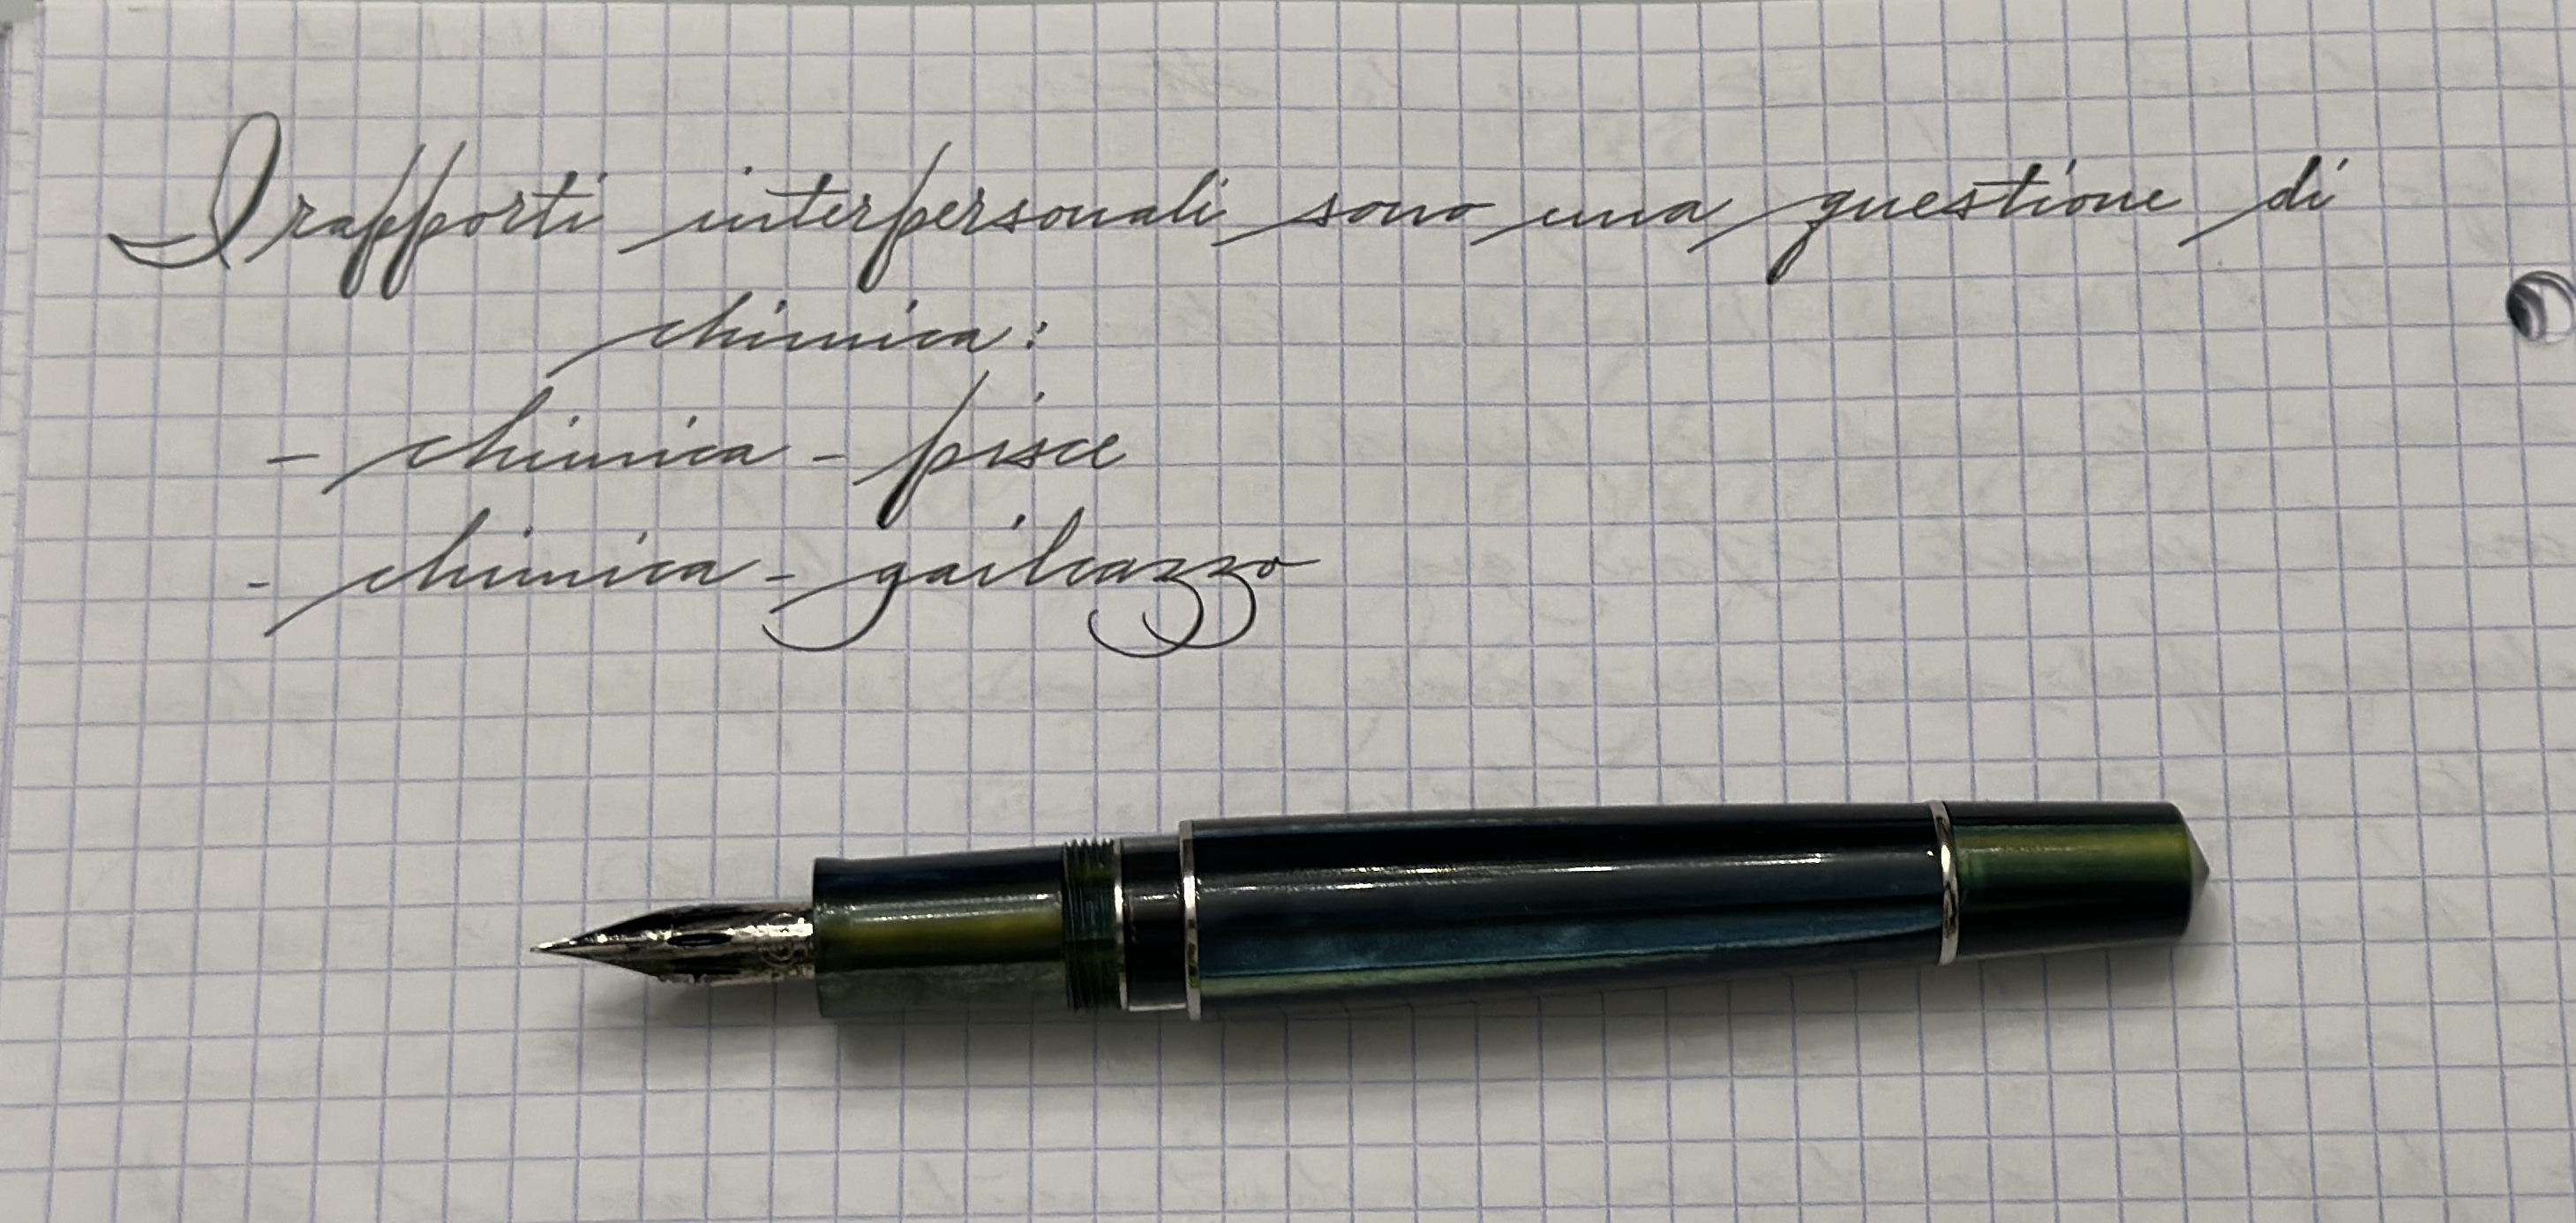 I rapporti interpersonali sono una questione di
chimica:
- chimica - pisce
- chimica - gailcazzo